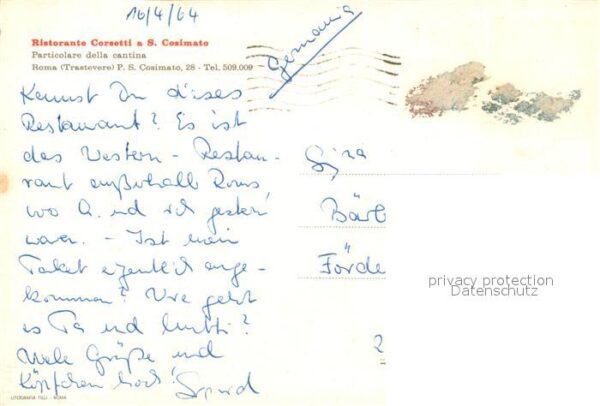 16/4/64
Ristorante Corsetti a S. Cosimato
Particolare della cantina
Roma (Trastevere) P. S. Cosimato, 28 - Tel. 509.009
Germania
Kennst Du dieses
Restaurant? Es ist
das Western - Restau-
rant außerhalb Roms,
wo G. und ich gestern
waren. - Ist mein
Paket eigentlich ange-
kommen? Wie geht
es Pa und Mutti?
Viele Grüße und
Köpfchen hoch!
Sigrid
Sig.ra
Bärb
Förde
2
privacy protection
Datenschutz
LITOGRAFIA FELLI - ROMA